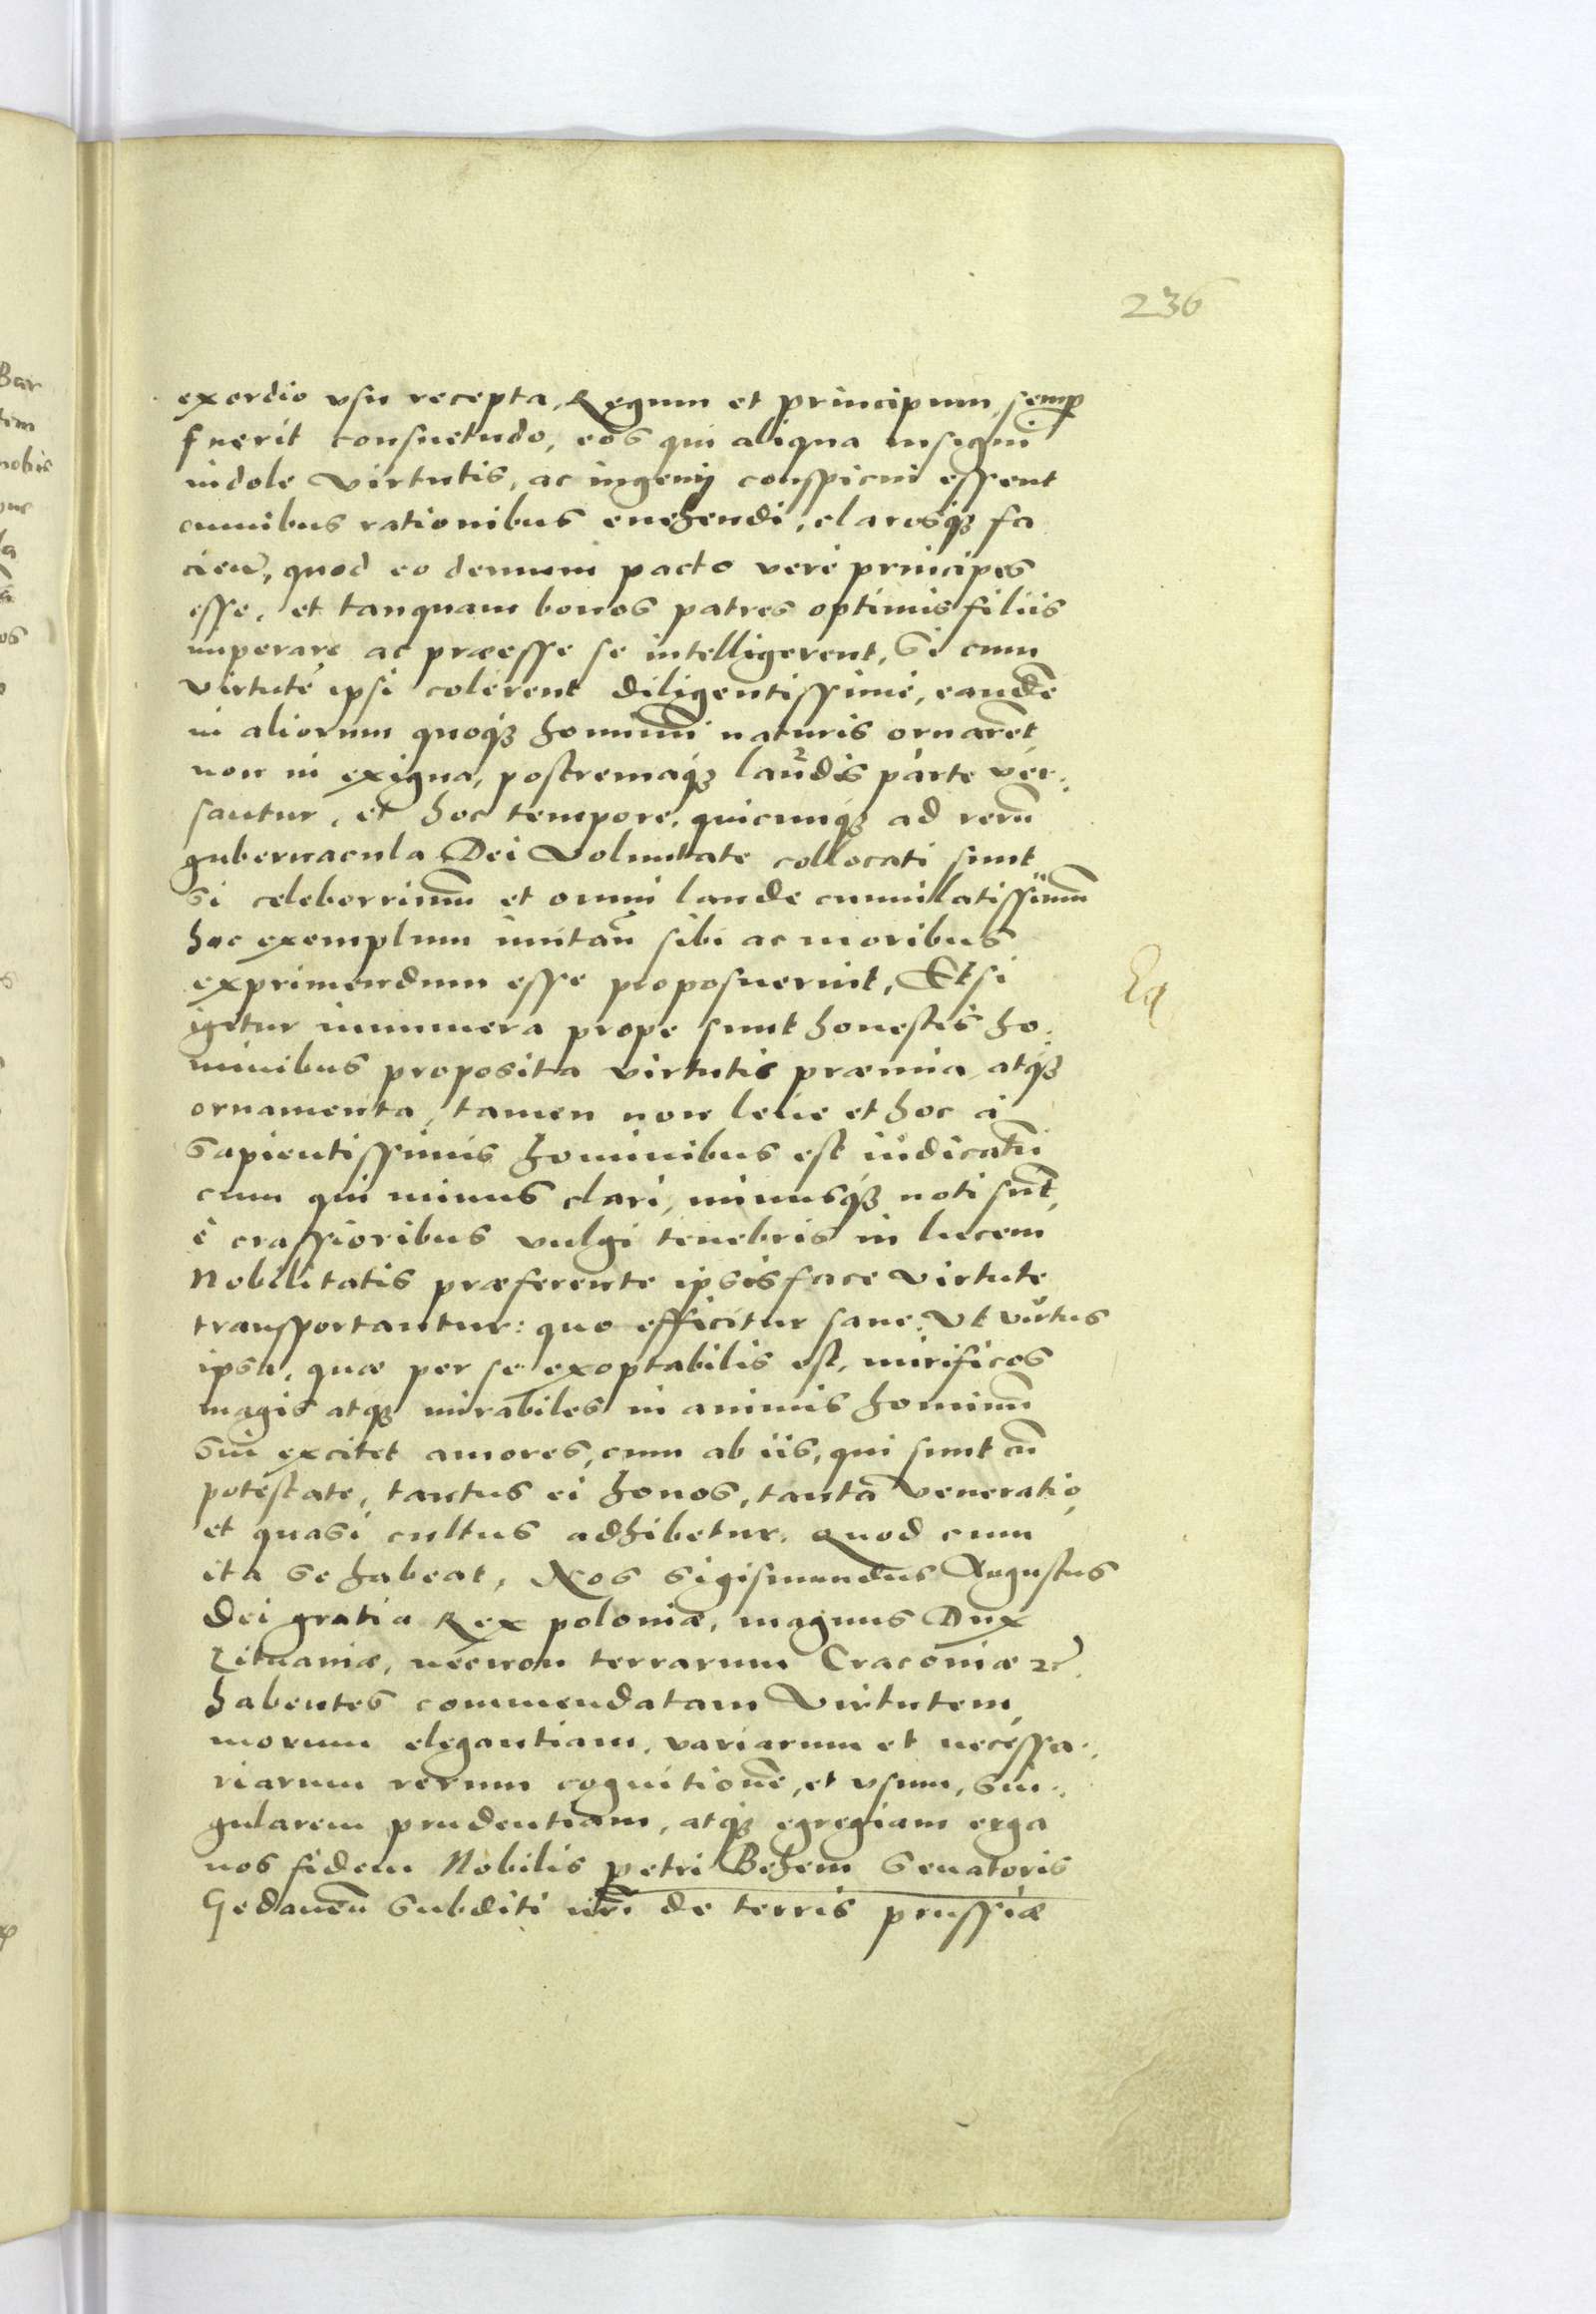 236
exordio vsu recepta, Regum et principum, semp
fuerit consuetudo, eos qui aliqua insigni
indole virtutis, ac ingenij conspicui essent
omnibus rationibus euehendi, clarosq3 fa
ciendi, quod eo demum pacto vere principes
esse, et tanquam bonos patres optimis filiis
imperare ac præesse se intelligerent, si cum
virtutē ipsi colerent diligentissime, eandē
in aliorum quoq3 hominū naturis ornarēt
non in exigua, postremaq3 laudis parte ver:
santur, et hoc tempore, quicunq3 ad rerū
gubernacula Dei Voluntate collocati sunt
si celeberrimū et omni laude cumulatissimū
hoc exemplum imitatū sibi ac moribus
exprimendum esse proposuerint, Etsi
igitur innumera prope sunt honestis ho:
minibus proposita virtutis præmia, atq3
ornamenta, tamen non leue et hoc à
sapientissimis hominibus est iudicatū
cum qui minus clari, minusq3 noti sūt,
è crassioribus vulgi tenebris in lucem
Nobilitatis præferente ipsis face virtute
transportantur: quo efficitur sane. Vt virtus
ipsa, quæ per se exoptabilis est, mirificos
magis atq3 mirabiles in animis hominū
sui excitet amores, cum ab iis, qui sunt cū
potestate, tantus ei honos, tanta veneratio
et quasi cultus adhibetur. Quod cum
ita se habeat, Nos Sigismundus Augustus
Dei gratia Rex poloniæ, magnus Dux
Lituaniæ, necnon terrarum Cracouiæ 2c.
habentes commendatam Virtutem,
morum elegantiam, variarum et necessa:
riarum rerum cognitionē, et vsum, sin:
gularem prudentiam, atq3 egregiam erga
nos fidem Nobilis petri Behem Senatoris
Gedanen̄ Subditi nr̄i de terris prussiæ